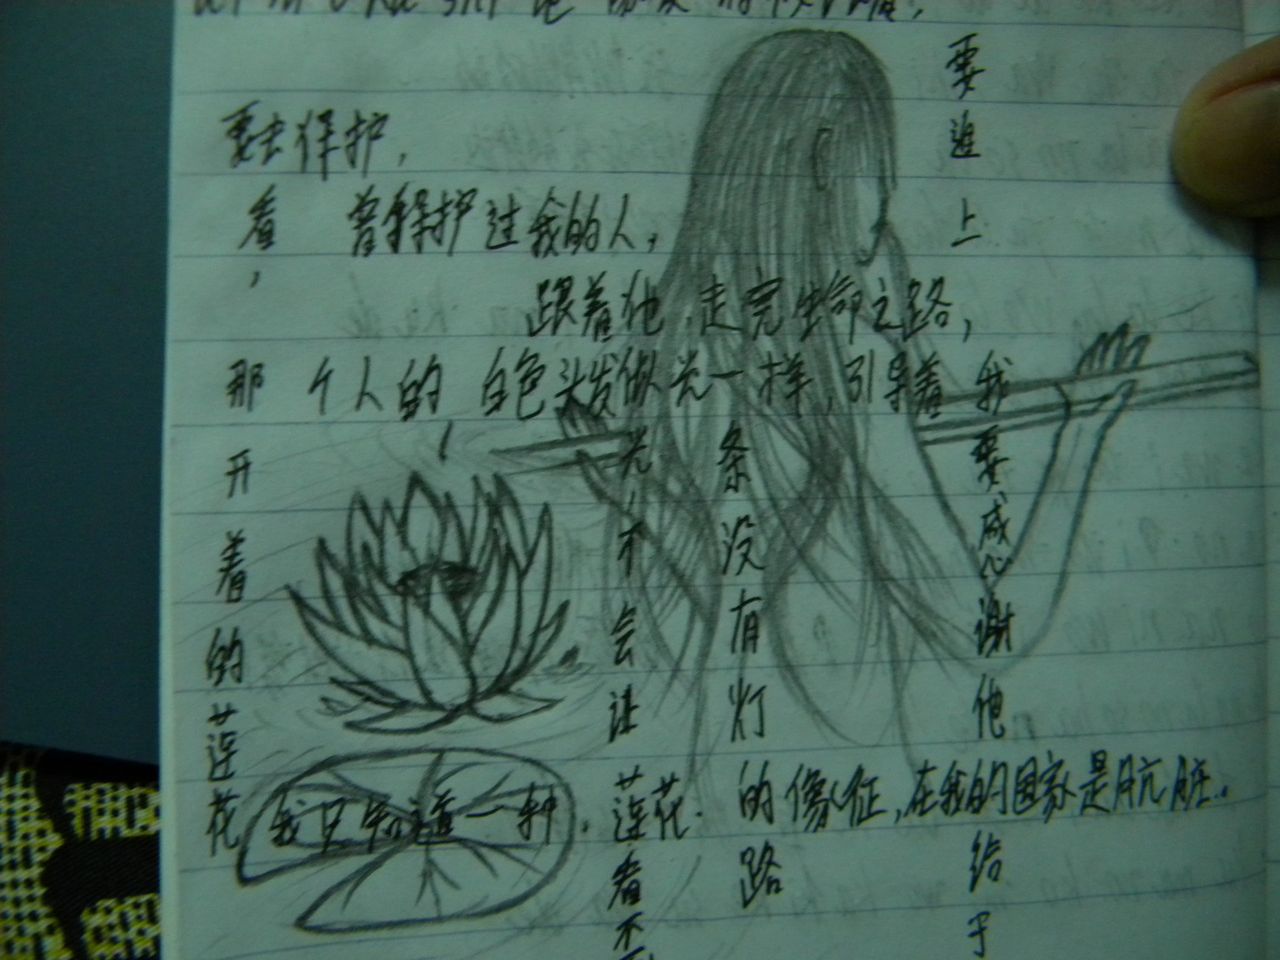 要去保护,
看, 曾保护过我的人,
跟着他,走完生命之路,
那个人的 白色头发像光一样,引导着我
我只知道一种.莲花.的像征,在我的国家是肮脏..
开着的莲花
光不会让莲花看不
条没有灯的路
要追上
我要感谢他给予